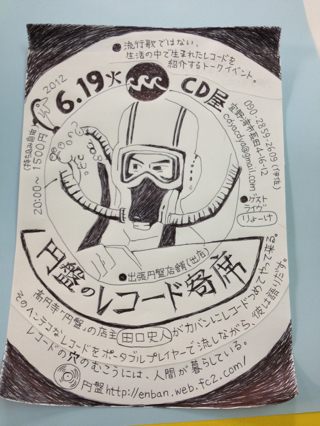 ●流行歌ではない、
生活の中で生まれたレコードを
紹介するトークイベント。
2012
6.19火
CD屋
090-2859-2609(伊佐)
宜野湾市嘉田4-16-12
cdyacdya@gmail.com
●ゲスト
ライヴ
りょーけ
(持ち込み自由)
20:00〜 1500円
●出張円盤店舗(出店)
円盤のレコード寄席
高円寺「円盤」の店主 田口史人 がカバンにレコードつめてやって来る。
そのヘンテコなレコードをポータブルプレイヤーで流しながら、彼は語りだす。
レコードの穴のむこうには、人間が暮らしている。
円盤 http://enban.web.fc2.com/